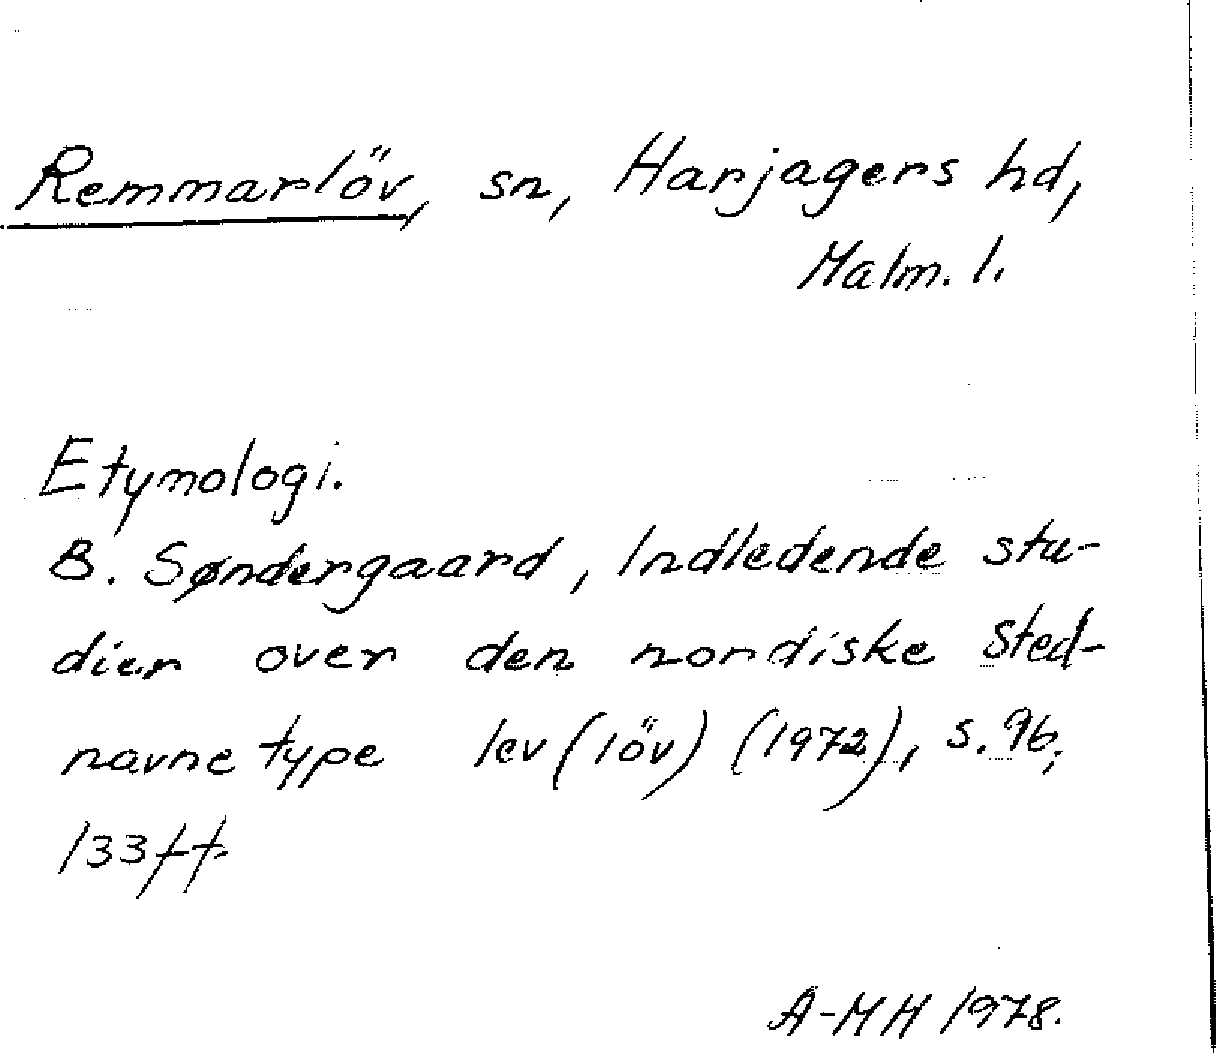 Remmarlöv, sn, Harjagers hd,
Malm. l.
Etymologi.
B. Søndergaard, Indledende stu-
dier over den nordiske sted-
navne type lev (löv) (1972), s. 96,
133ff.
A-MH 1978.